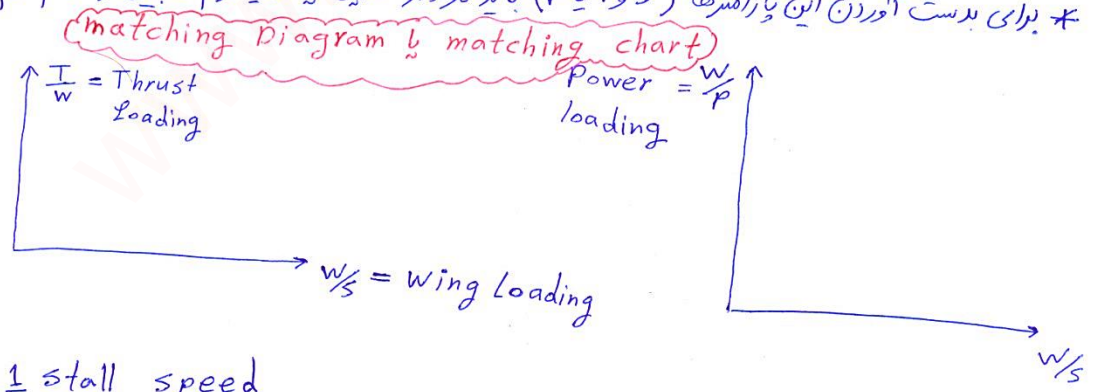 * برای بدست آوردن این پارامترها
(matching Diagram یا matching chart)
T/W = Thrust Loading
Power loading = W/P
W/S = Wing Loading
W/S
1 stall speed